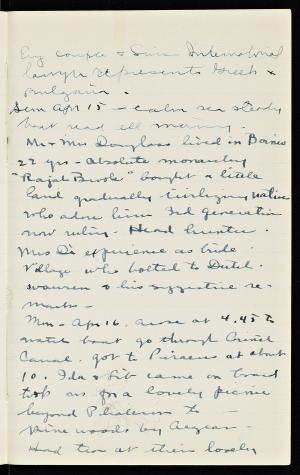 Eng couple & Swiss International
lawyer represents Greek &
Bulgaria.
Sun Apr 15 — calm sea steady
boat read all morning.
Mr & Mrs Douglass lived in Borneo
22 yrs - absolute monarchy
"Rajah Brook" bought a little
land gradually civilizing natives
who adore him 3rd generation
now ruling. Head hunter.
Mrs D's experience as bride.
Village who bolted to Dutch.
& his suggestive re-
marks —
Mon - Apr 16. arose at 4.45 to
watch boat go through
Canal. got to Piraeus at about
10. Ida & Lib came on board
took us for a lovely picnic
beyond to —
pine woods by Aegean —
Had tea at their lovely